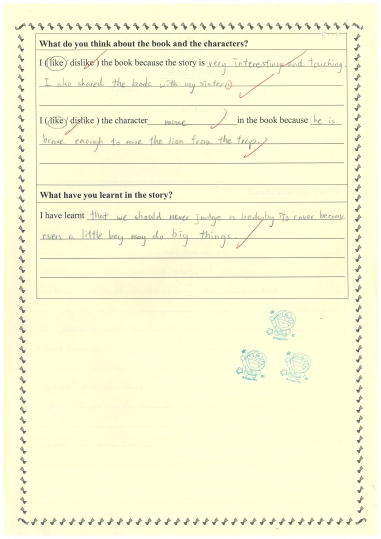 What do you think about the book and the characters?
I ( like / dislike ) the book because the story is very interesting and touching.
I also shared the book with my sister.
I ( like / dislike ) the character mouse in the book because he is
brave enough to save the lion from the trap.
What have you learnt in the story?
I have learnt that we should never judge a book by its cover because
even a little boy may do big things.